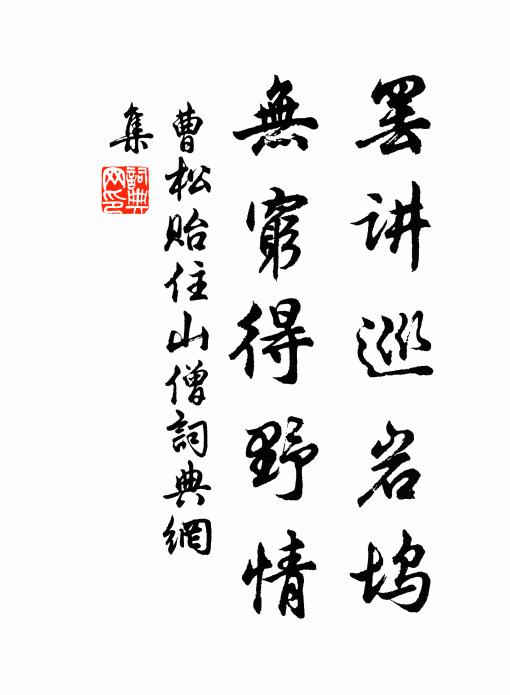 罢讲巡岩坞
無窮得野情
曹松贻住山僧詞典網
集
詞典网印